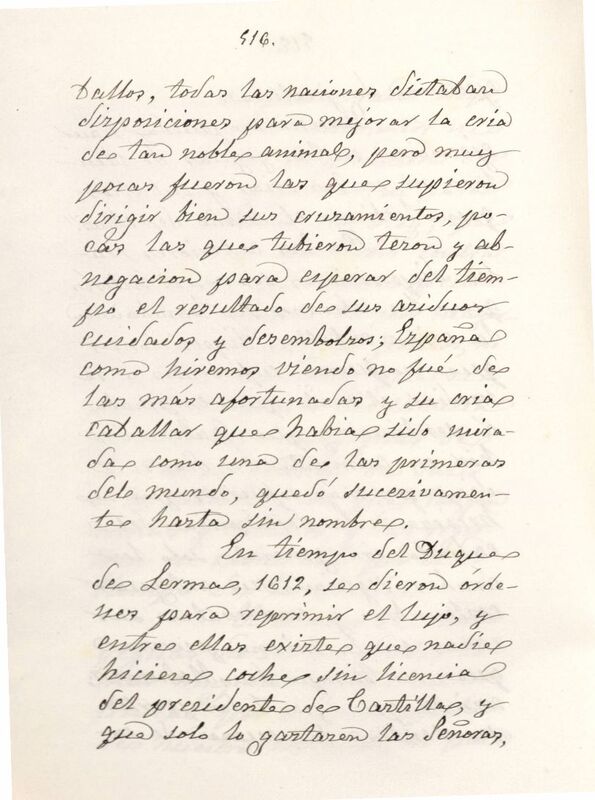 516.
ballos, todas las naciones dictaban
disposiciones para mejorar la cria
de tan noble animal, pero muy
pocas fueron las que supieron
dirigir bien sus cruzamientos, po-
cas las que tubieron teson y ab-
negacion para esperar del tiem-
po el resultado de sus asiduos
cuidados y desembolsos; España
como hiremos viendo no fué de
las más afortunadas y su cria
caballar que habia sido mira-
da como una de las primeras
del mundo, quedó sucesivamen-
te hasta sin nombre.
En tiempo del Duque
de Lerma, 1612, se dieron órde-
nes para reprimir el lujo, y
entre ellas existe que nadie
hiciese coche sin licencia
del presidente de Castilla, y
que solo lo gastasen las Señoras,